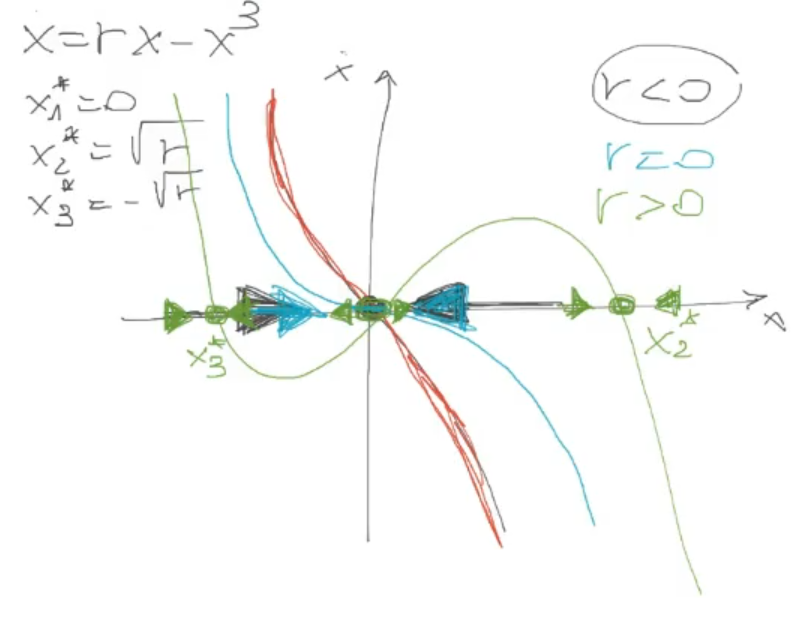 x=rx-x³
x₁*=0
x₂*=√r
x₃*=-√r
ẋ
r<0
r=0
r>0
x₃*
x₂*
x